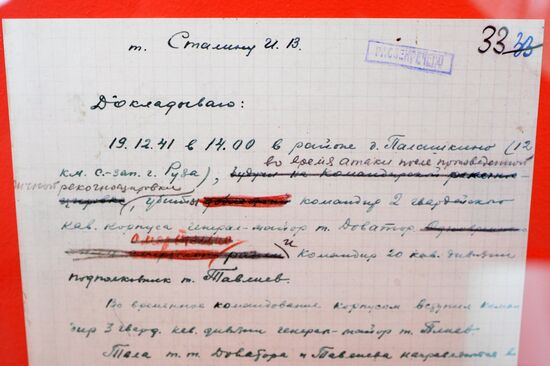 33 33
т. Сталину И. В.
РАССЕКРЕЧЕНО
Докладываю:
19.12.41 в 14.00 в районе д. Палашкино (12
во время атаки после произведенной
км. с.-зап. г. Руза),
личной рекогносцировки
убиты командир 2 гвардейского
кав. корпуса генерал-майор т. Доватор
и командир 20 кав. дивизии
подполковник т. Тавлиев.
Во временное командование корпусом вступил коман-
дир 3 гвард. кав. дивизии генерал-майор т. Плиев
Тела т. т. Доватора и Тавлиева направляются в